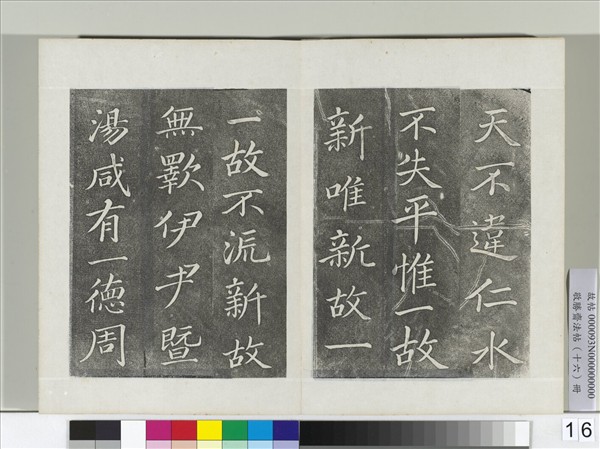 天不違仁水
不失平惟一故
新唯新故一
一故不流新故
無斁伊尹暨
湯咸有一德周
故帖 000093N000000000
敬勝齋法帖(十六)冊
16